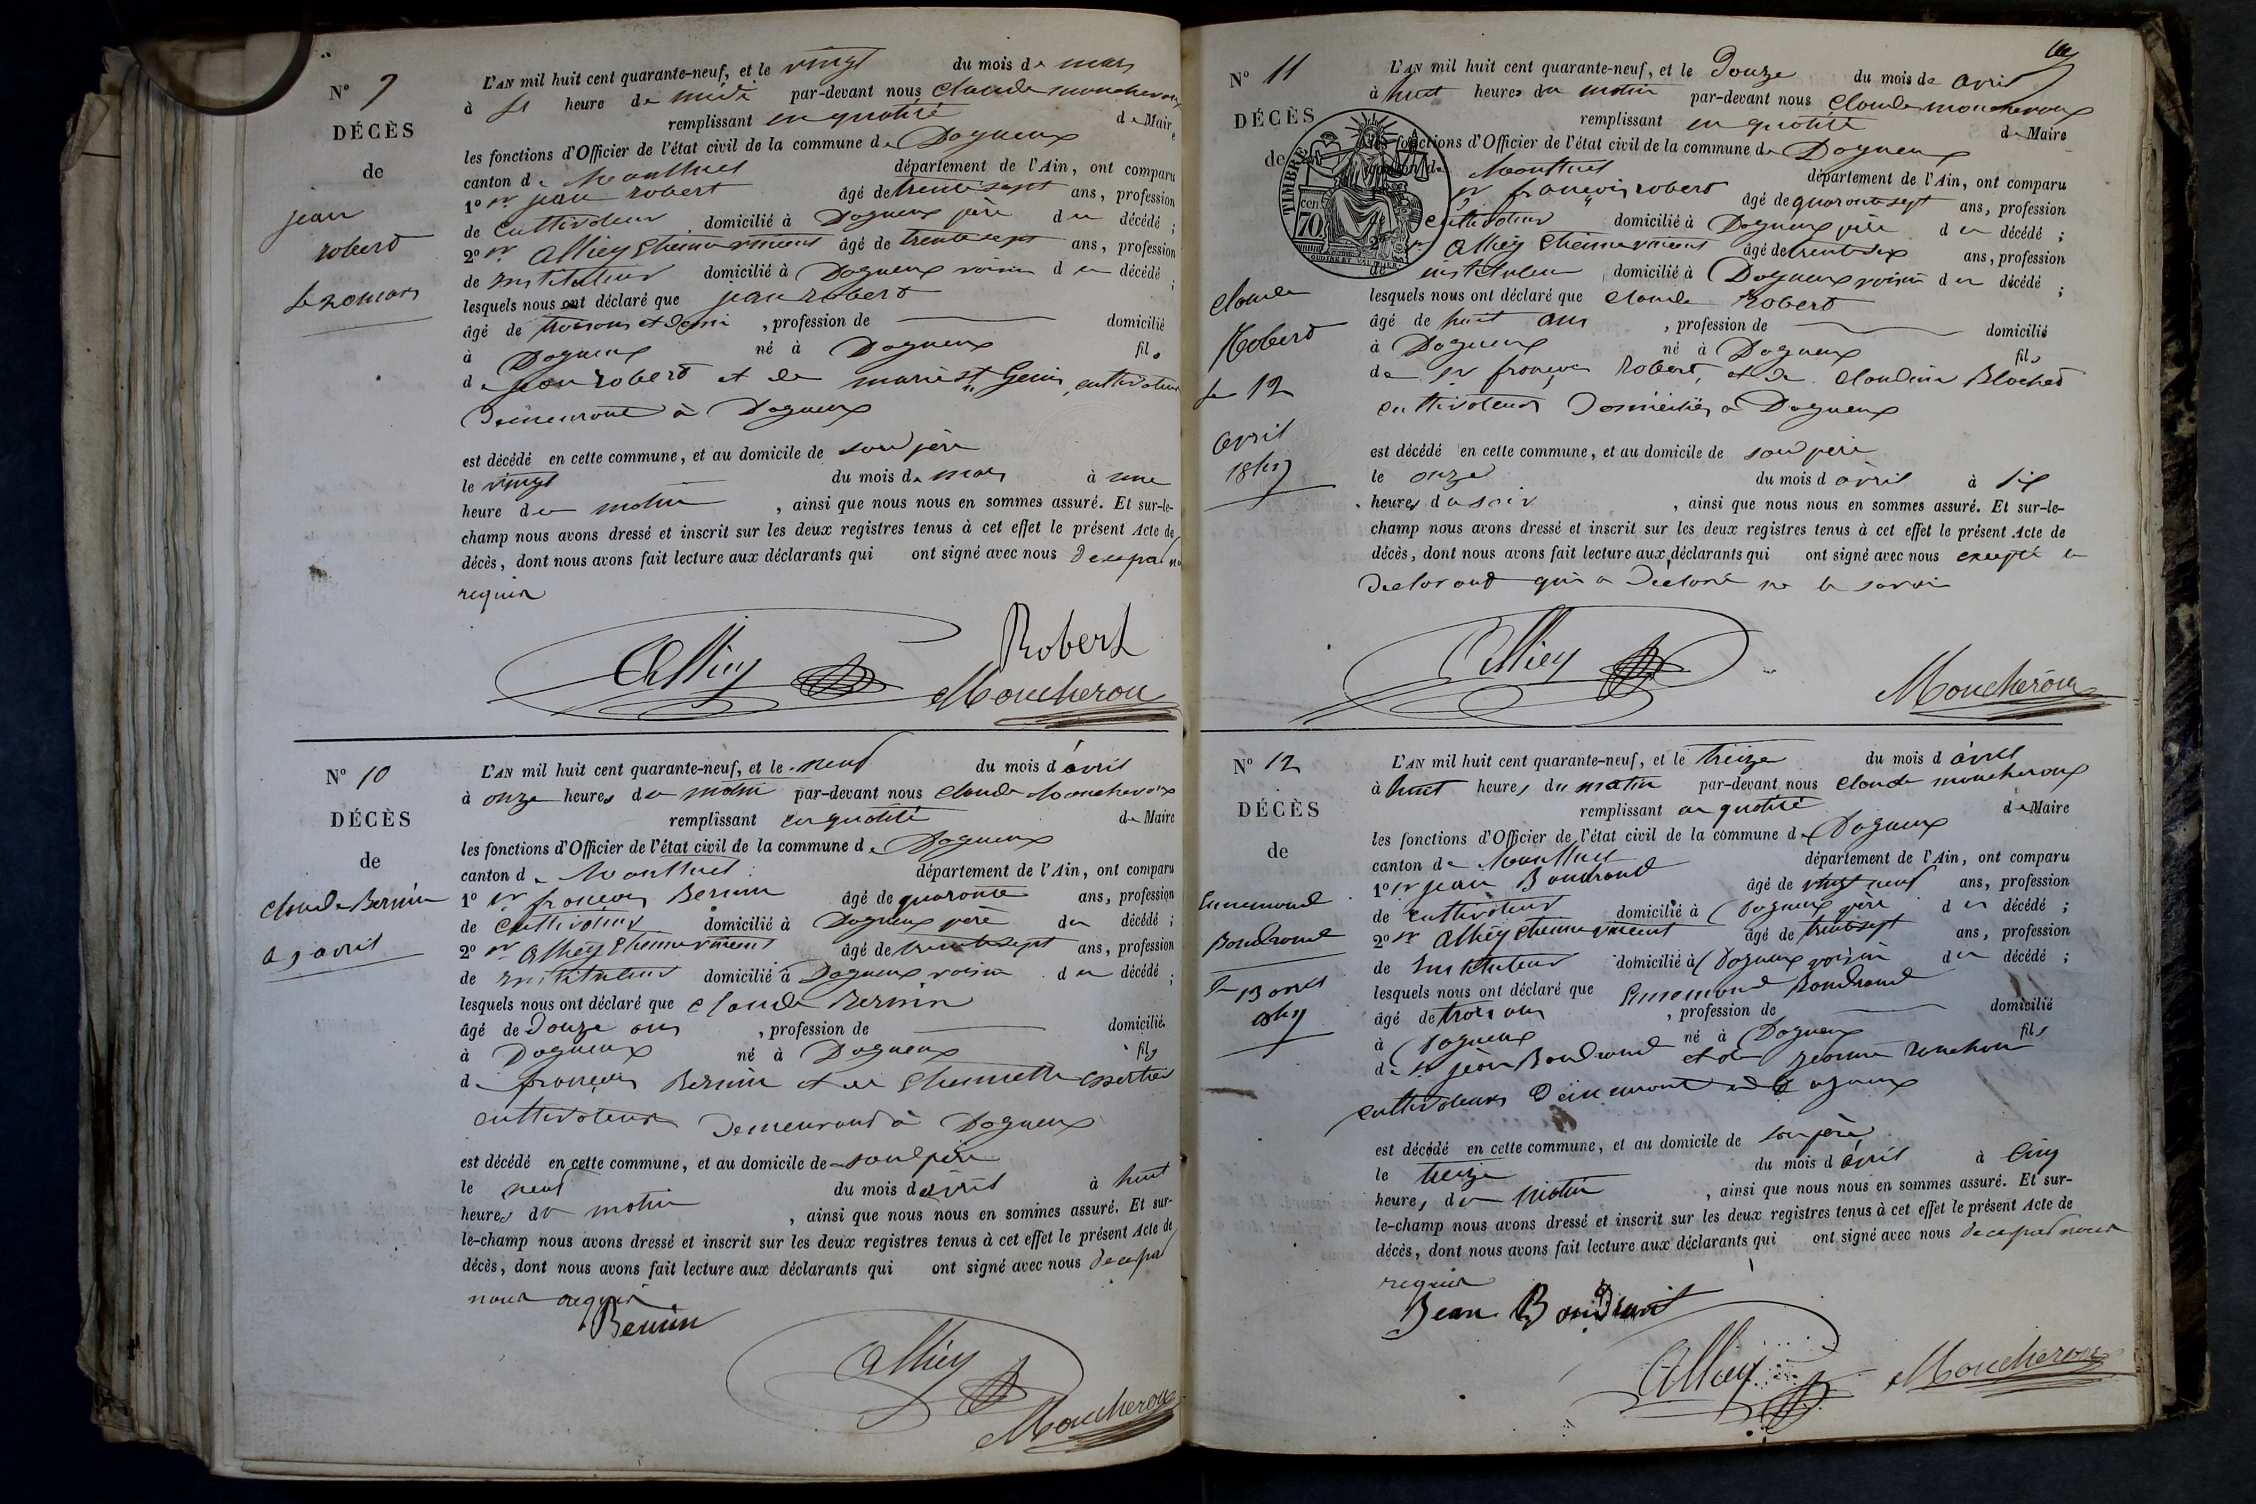 N° 9
DÉCÈS
de
jean
robert
le 20 mars
L'AN mil huit cent quarante-neuf, et le vingt du mois de mars
à heure de midi par-devant nous Claude moucheroux
remplissant en qualité de Maire
les fonctions d'Officier de l'état civil de la commune de Dagneux
canton de Montluel département de l'Ain, ont comparu
1° sr jean robert âgé de trente sept ans, profession
de Cultivateur domicilié à Dagneux père du décédé ;
2° sr Alliey Etienne vincent âgé de trente sept ans, profession
de instituteur domicilié à Dagneux voisin du décédé ;
lesquels nous ont déclaré que jean robert
âgé de trois ans et demi , profession de domicilié
à Dagneux né à Dagneux fils
de jean robert et de marie st Genis, cultivateurs
demeurant à Dagneux
est décédé en cette commune, et au domicile de son père
le vingt du mois de mars à une
heure du matin , ainsi que nous nous en sommes assuré. Et sur-le-
champ nous avons dressé et inscrit sur les deux registres tenus à cet effet le présent Acte de
décès, dont nous avons fait lecture aux déclarants qui ont signé avec nous de ce par nous
requis
Robert
Alliey
Moucheroux
N° 10
DÉCÈS
de
Claude Bernin
9 avril
L'AN mil huit cent quarante-neuf, et le neuf du mois d'avril
à onze heures du matin par-devant nous Claude Moucheroux
remplissant en qualité de Maire
les fonctions d'Officier de l'état civil de la commune de Dagneux
canton de Montluel département de l'Ain, ont comparu
1° sr françois Bernin âgé de quarante ans, profession
de Cultivateur domicilié à Dagneux père du décédé ;
2° sr Alliey Etienne vincent âgé de trente sept ans, profession
de instituteur domicilié à Dagneux voisin du décédé ;
lesquels nous ont déclaré que Claude Bernin
âgé de Douze ans , profession de domicilié
à Dagneux né à Dagneux fils
de françois Bernin et de
cultivateurs demeurant à Dagneux
est décédé en cette commune, et au domicile de son père
le neuf du mois d'avril à huit
heures du matin , ainsi que nous nous en sommes assuré. Et sur-
le-champ nous avons dressé et inscrit sur les deux registres tenus à cet effet le présent Acte de
décès, dont nous avons fait lecture aux déclarants qui ont signé avec nous de ce par
nous requis
Bernin
Alliey
Moucheroux
N° 11
DÉCÈS
de
TIMBRE
70 cen
Claude
Robert
le 12
avril
1849
L'AN mil huit cent quarante-neuf, et le Douze du mois de avril
à huit heures du matin par-devant nous Claude moucheroux
remplissant en qualité de Maire
les fonctions d'Officier de l'état civil de la commune de Dagneux
canton de Montluel département de l'Ain, ont comparu
sr françois robert âgé de quarante sept ans, profession
cultivateur domicilié à Dagneux père du décédé ;
2° sr Alliey Etienne vincent âgé de trente six ans, profession
de instituteur domicilié à Dagneux voisin du décédé ;
lesquels nous ont déclaré que Claude Robert
âgé de huit ans , profession de domicilié
à Dagneux né à Dagneux fils
de sr françois Robert, et de Claudine Blachet
cultivateurs domiciliés à Dagneux
est décédé en cette commune, et au domicile de son père
le onze du mois d avril à six
heures du soir , ainsi que nous nous en sommes assuré. Et sur-le-
champ nous avons dressé et inscrit sur les deux registres tenus à cet effet le présent Acte de
décès, dont nous avons fait lecture aux déclarants qui ont signé avec nous excepté le
déclarant qui a déclaré ne le savoir
Alliey
Moucheroux
N° 12
DÉCÈS
de
Ennemond
Boudrand
le 13 avril
1849
L'AN mil huit cent quarante-neuf, et le treize du mois d avril
à huit heures du matin par-devant nous Claude moucheroux
remplissant en qualité de Maire
les fonctions d'Officier de l'état civil de la commune de Dagneux
canton de Montluel département de l'Ain, ont comparu
1° sr jean Boudrand âgé de vingt neuf ans, profession
de cultivateur domicilié à Dagneux père du décédé ;
2° sr Alliey Etienne vincent âgé de trente sept ans, profession
de instituteur domicilié à Dagneux voisin du décédé ;
lesquels nous ont déclaré que Ennemond Boudrand
âgé de trois ans , profession de domicilié
à Dagneux né à Dagneux fils
de sr jean Boudrand et de jeanne
cultivateurs demeurant à Dagneux
est décédé en cette commune, et au domicile de son père
le treize du mois d avril à cinq
heures du matin , ainsi que nous nous en sommes assuré. Et sur-
le-champ nous avons dressé et inscrit sur les deux registres tenus à cet effet le présent Acte de
décès, dont nous avons fait lecture aux déclarants qui ont signé avec nous de ce par nous
requis
Jean Boudrant
Alliey
Moucheroux